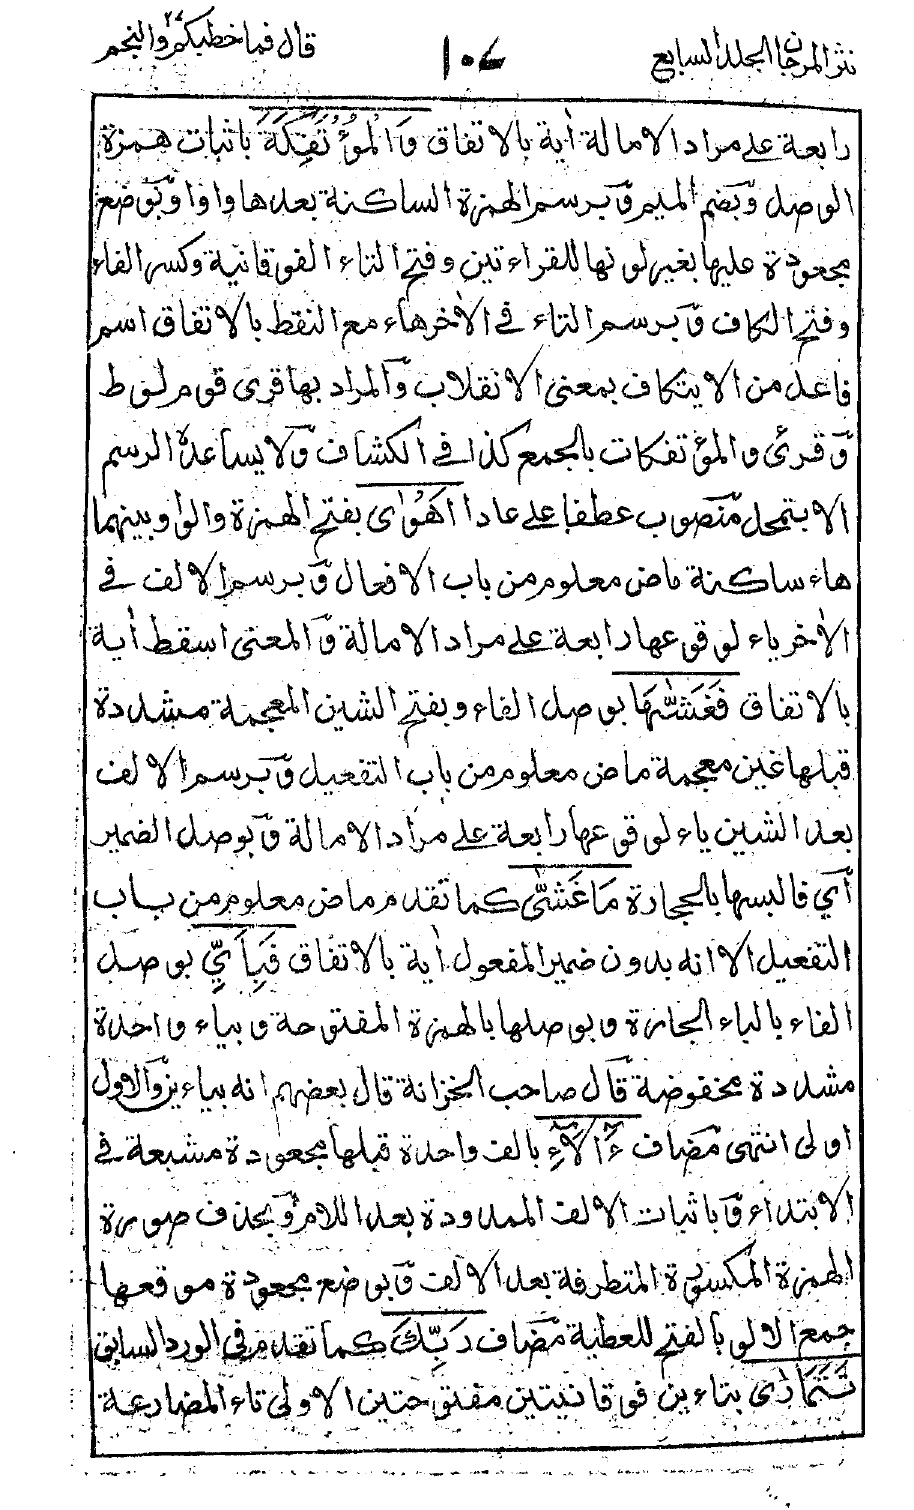 نثر المرجان المجلد السابع
١٠٤
قال فما خطبكم ٢٧ والنجم
رابعة على مراد الامالة أية بالاتفاق وَالْمُؤْتَفِكَةَ باثبات همزة
الوصل وبضم الميم وبرسم الهمزة الساكنة بعدها واوا وبوضع
مجعودة عليها بغير لونها للقراءتين وفتح التاء الفوقانية وكسر الفاء
وفتح الكاف وبرسم التاء في الاٰخر هاء مع النقط بالاتفاق اسم
فاعل من الايتكاف بمعنى الانقلاب والمراد بها قرى قوم لوط
وقرئ والمؤتفكات بالجمع كذا في الكشاف ولا يساعده الرسم
الا بتمحل منصوب عطفا على عادا اَهْوٰى بفتح الهمزة والواو وبينهما
هاء ساكنة ماض معلوم من باب الافعال وبرسم الالف في
الاٰخر ياء لوقوعها رابعة على مراد الامالة والمعنى اسقط أية
بالاتفاق فَغَشّٰىهَا بوصل الفاء وبفتح الشين المعجمة مشددة
قبلها غين معجمة ماض معلوم من باب التفعيل وبرسم الالف
بعد الشين ياء لوقوعها رابعة على مراد الامالة وبوصل الضمير
أي فالبسها بالحجارة مَا غَشّٰى كما تقدم ماض معلوم من باب
التفعيل الا انه بدون ضمير المفعول أية بالاتفاق فَبِاَيِّ بوصل
الفاء بالباء الجارة وبوصلها بالهمزة المفتوحة وبياء واحدة
مشددة مخفوضة قال صاحب الخزانة قال بعضهم انه بياءين والاول
اولى انتهى مضاف ءَالَآءِ بالف واحدة قبلها مجعودة مشبعة في
الابتداء وباثبات الالف الممدودة بعد اللام وبحذف صورة
الهمزة المكسورة المتطرفة بعد الالف وبوضع مجعودة موقعها
جمع الالو بالفتح للعطية مضاف رَبِّكَ كما تقدم في الورد السابق
تَتَمَارٰى بتاءين فوقانيتين مفتوحتين الاولى تاء المضارعة